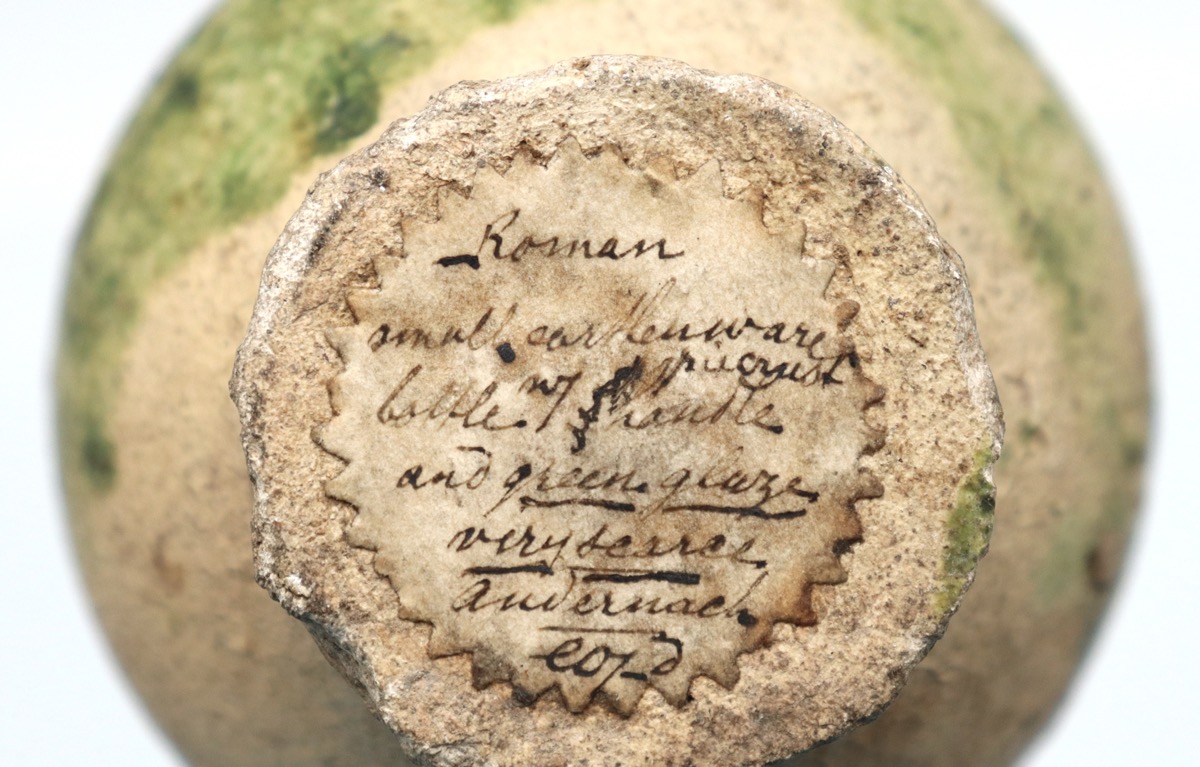 Roman
small earthenware
bottle w/ handle
and green glaze
very scarce
Andernach